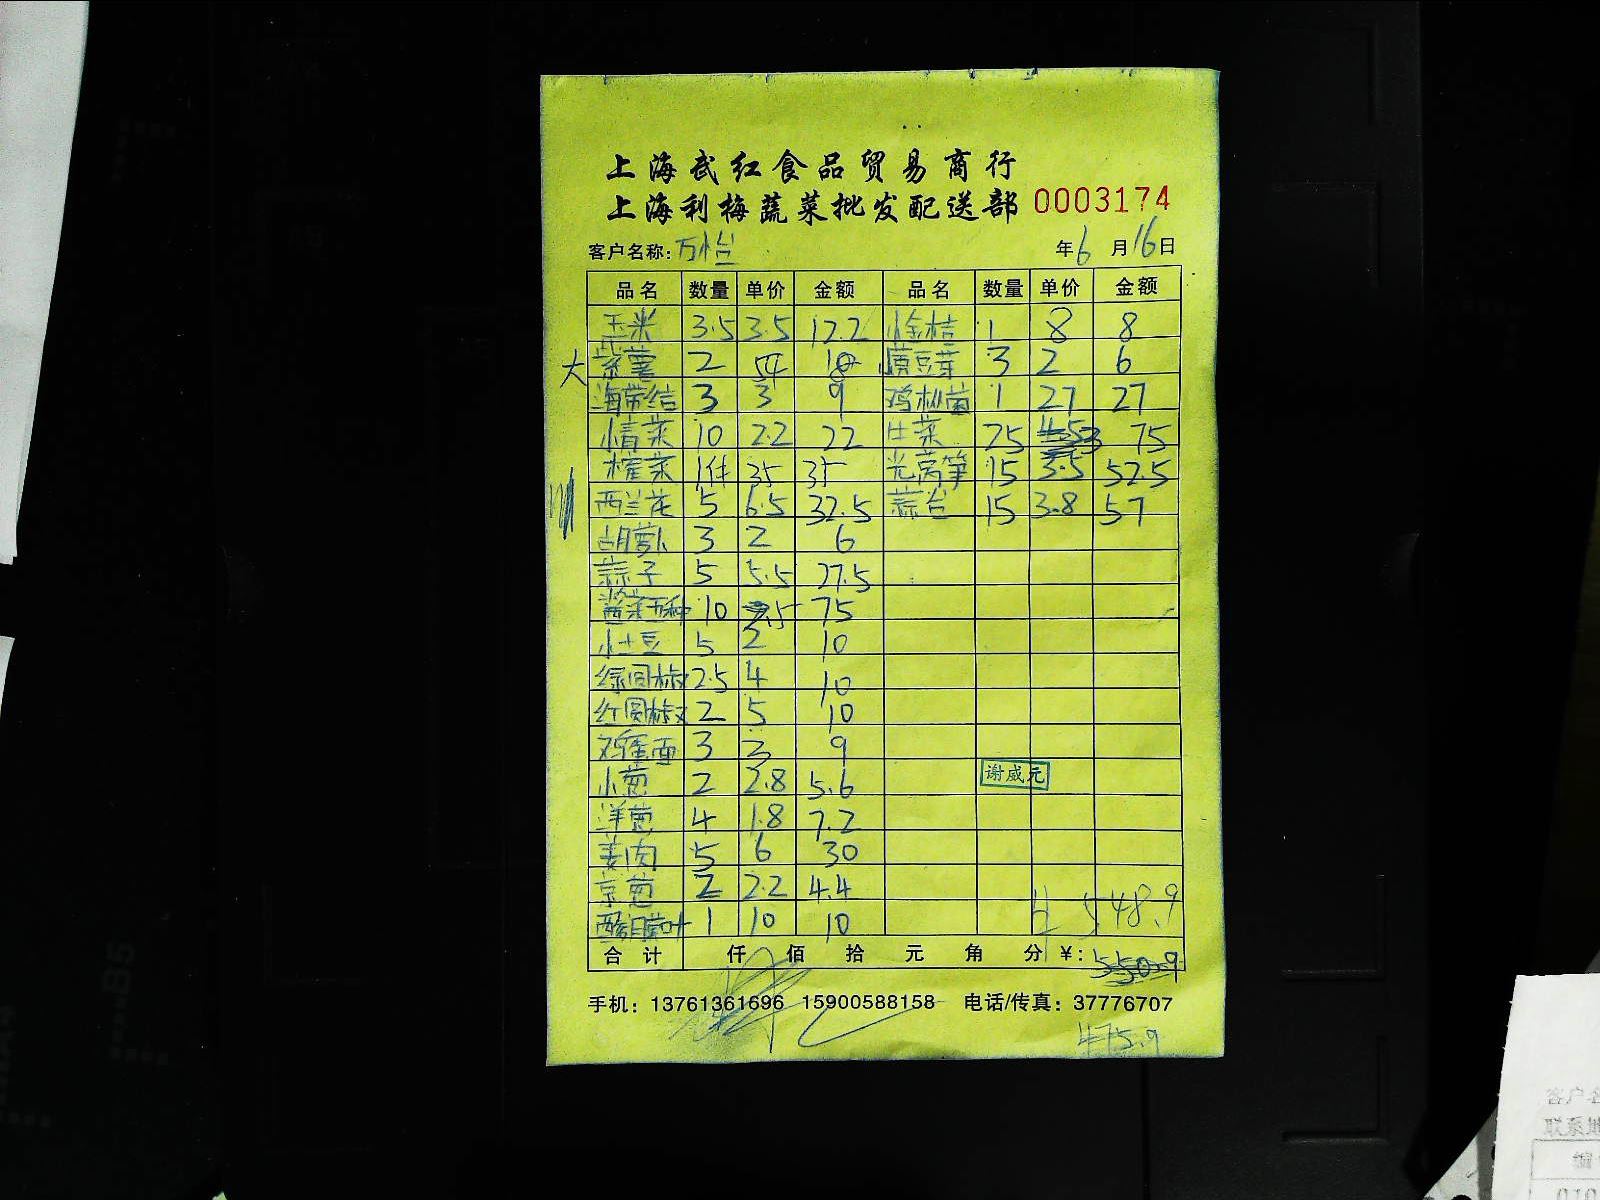 上海武红食品贸易商行
上海利梅蔬菜批发配送部 0003174
客户名称: 万怡 年 6 月 16 日
品名 数量 单价 金额 品名 数量 单价 金额
玉米 3.5 3.5 12.2 小金桔 1 8 8
大 紫薯 2 绿豆芽 3 2 6
海带结 3 3 9 鸡枞菌 1 27 27
小青菜 10 2.2 22 生菜 25 3 75
榨菜 1件 35 35 光莴笋 15 3.5 52.5
西兰花 5 6.5 32.5 蒜台 15 3.8 57
胡萝卜 3 2 6
蒜子 5 5.5 27.5
酱菜五种 10 7.5 75
小土豆 5 2 10
绿圆椒 2.5 4 10
红圆椒 2 5 10
鸡蛋面 3 3 9
小葱 2 2.8 5.6
谢威元
洋葱 4 1.8 7.2
姜肉 5 6 30
京葱 2 2.2 4.4
1 10 10
548.9
合计 仟 佰 拾 元 角 分 ¥: 550.9
手机: 13761361696 15900588158 电话/传真: 37776707
475.9